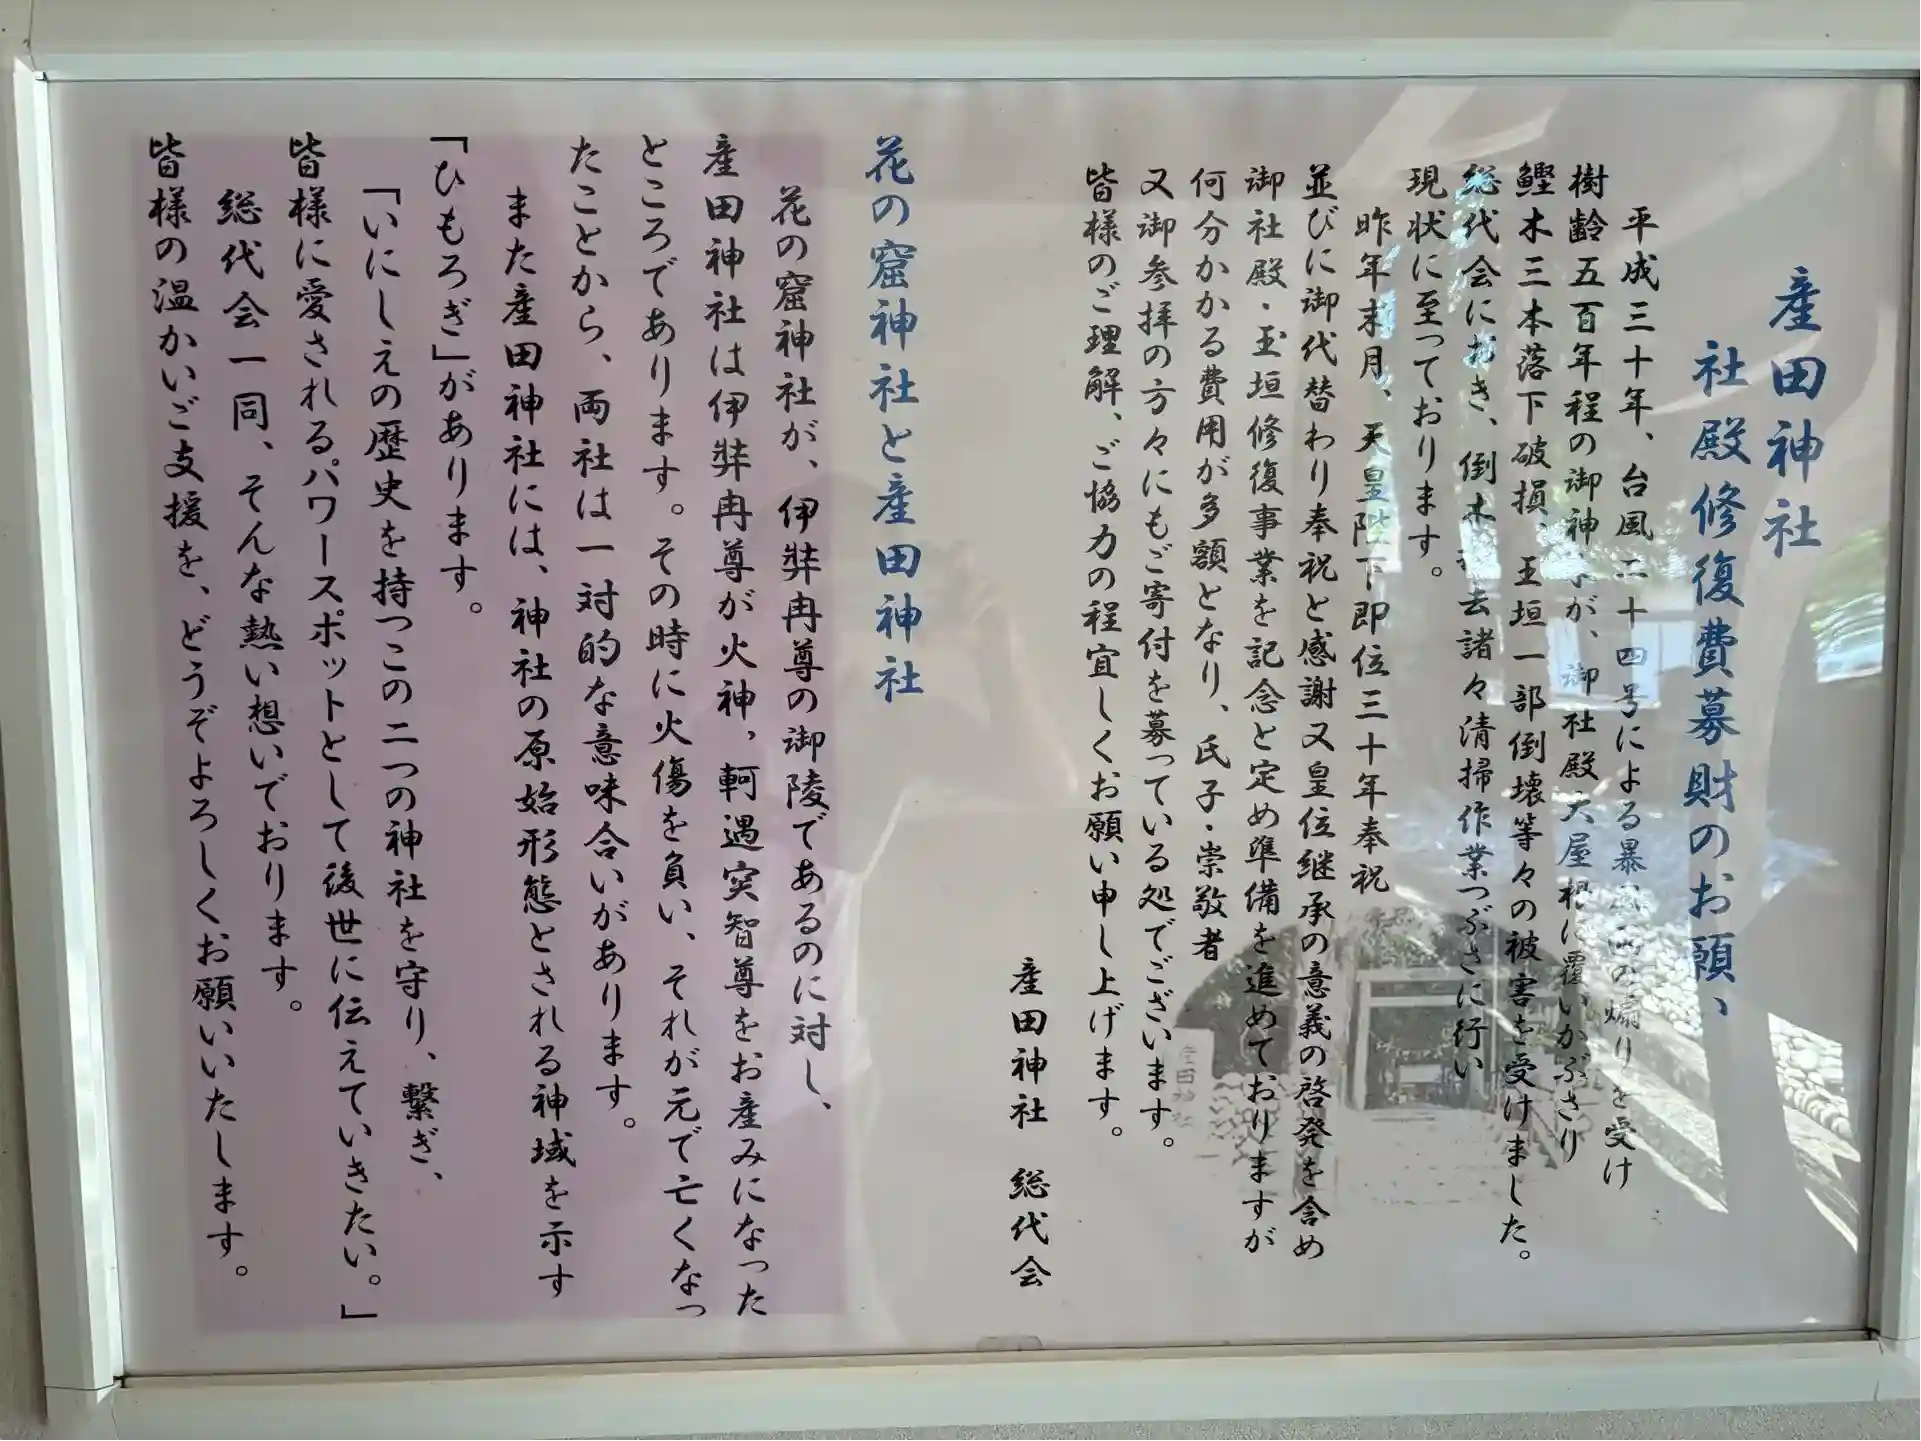 産田神社
社殿修復費募財のお願い
平成三十年、台風二十四号による暴風雨の煽りを受け
樹齢五百年程の御神木が、御社殿大屋根に覆いかぶさり
鰹木三本落下破損、玉垣一部倒壊等々の被害を受けました。
総代会におき、倒木撤去諸々清掃作業つぶさに行い
現状に至っております。
昨年末月、天皇陛下即位三十年奉祝
並びに御代替わり奉祝と感謝又皇位継承の意義の啓発を含め
御社殿・玉垣修復事業を記念と定め準備を進めておりますが
何分かかる費用が多額となり、氏子・崇敬者
又御参拝の方々にもご寄付を募っている処でございます。
皆様のご理解、ご協力の程宜しくお願い申し上げます。
産田神社 総代会
産田神社
花の窟神社と産田神社
花の窟神社が、伊弉冉尊の御陵であるのに対し、
産田神社は伊弉冉尊が火神，軻遇突智尊をお産みになった
ところであります。その時に火傷を負い、それが元で亡くなっ
たことから、両社は一対的な意味合いがあります。
また産田神社には、神社の原始形態とされる神域を示す
「ひもろぎ」があります。
「いにしえの歴史を持つこの二つの神社を守り、繋ぎ、
皆様に愛されるパワースポットとして後世に伝えていきたい。」
総代会一同、そんな熱い想いでおります。
皆様の温かいご支援を、どうぞよろしくお願いいたします。